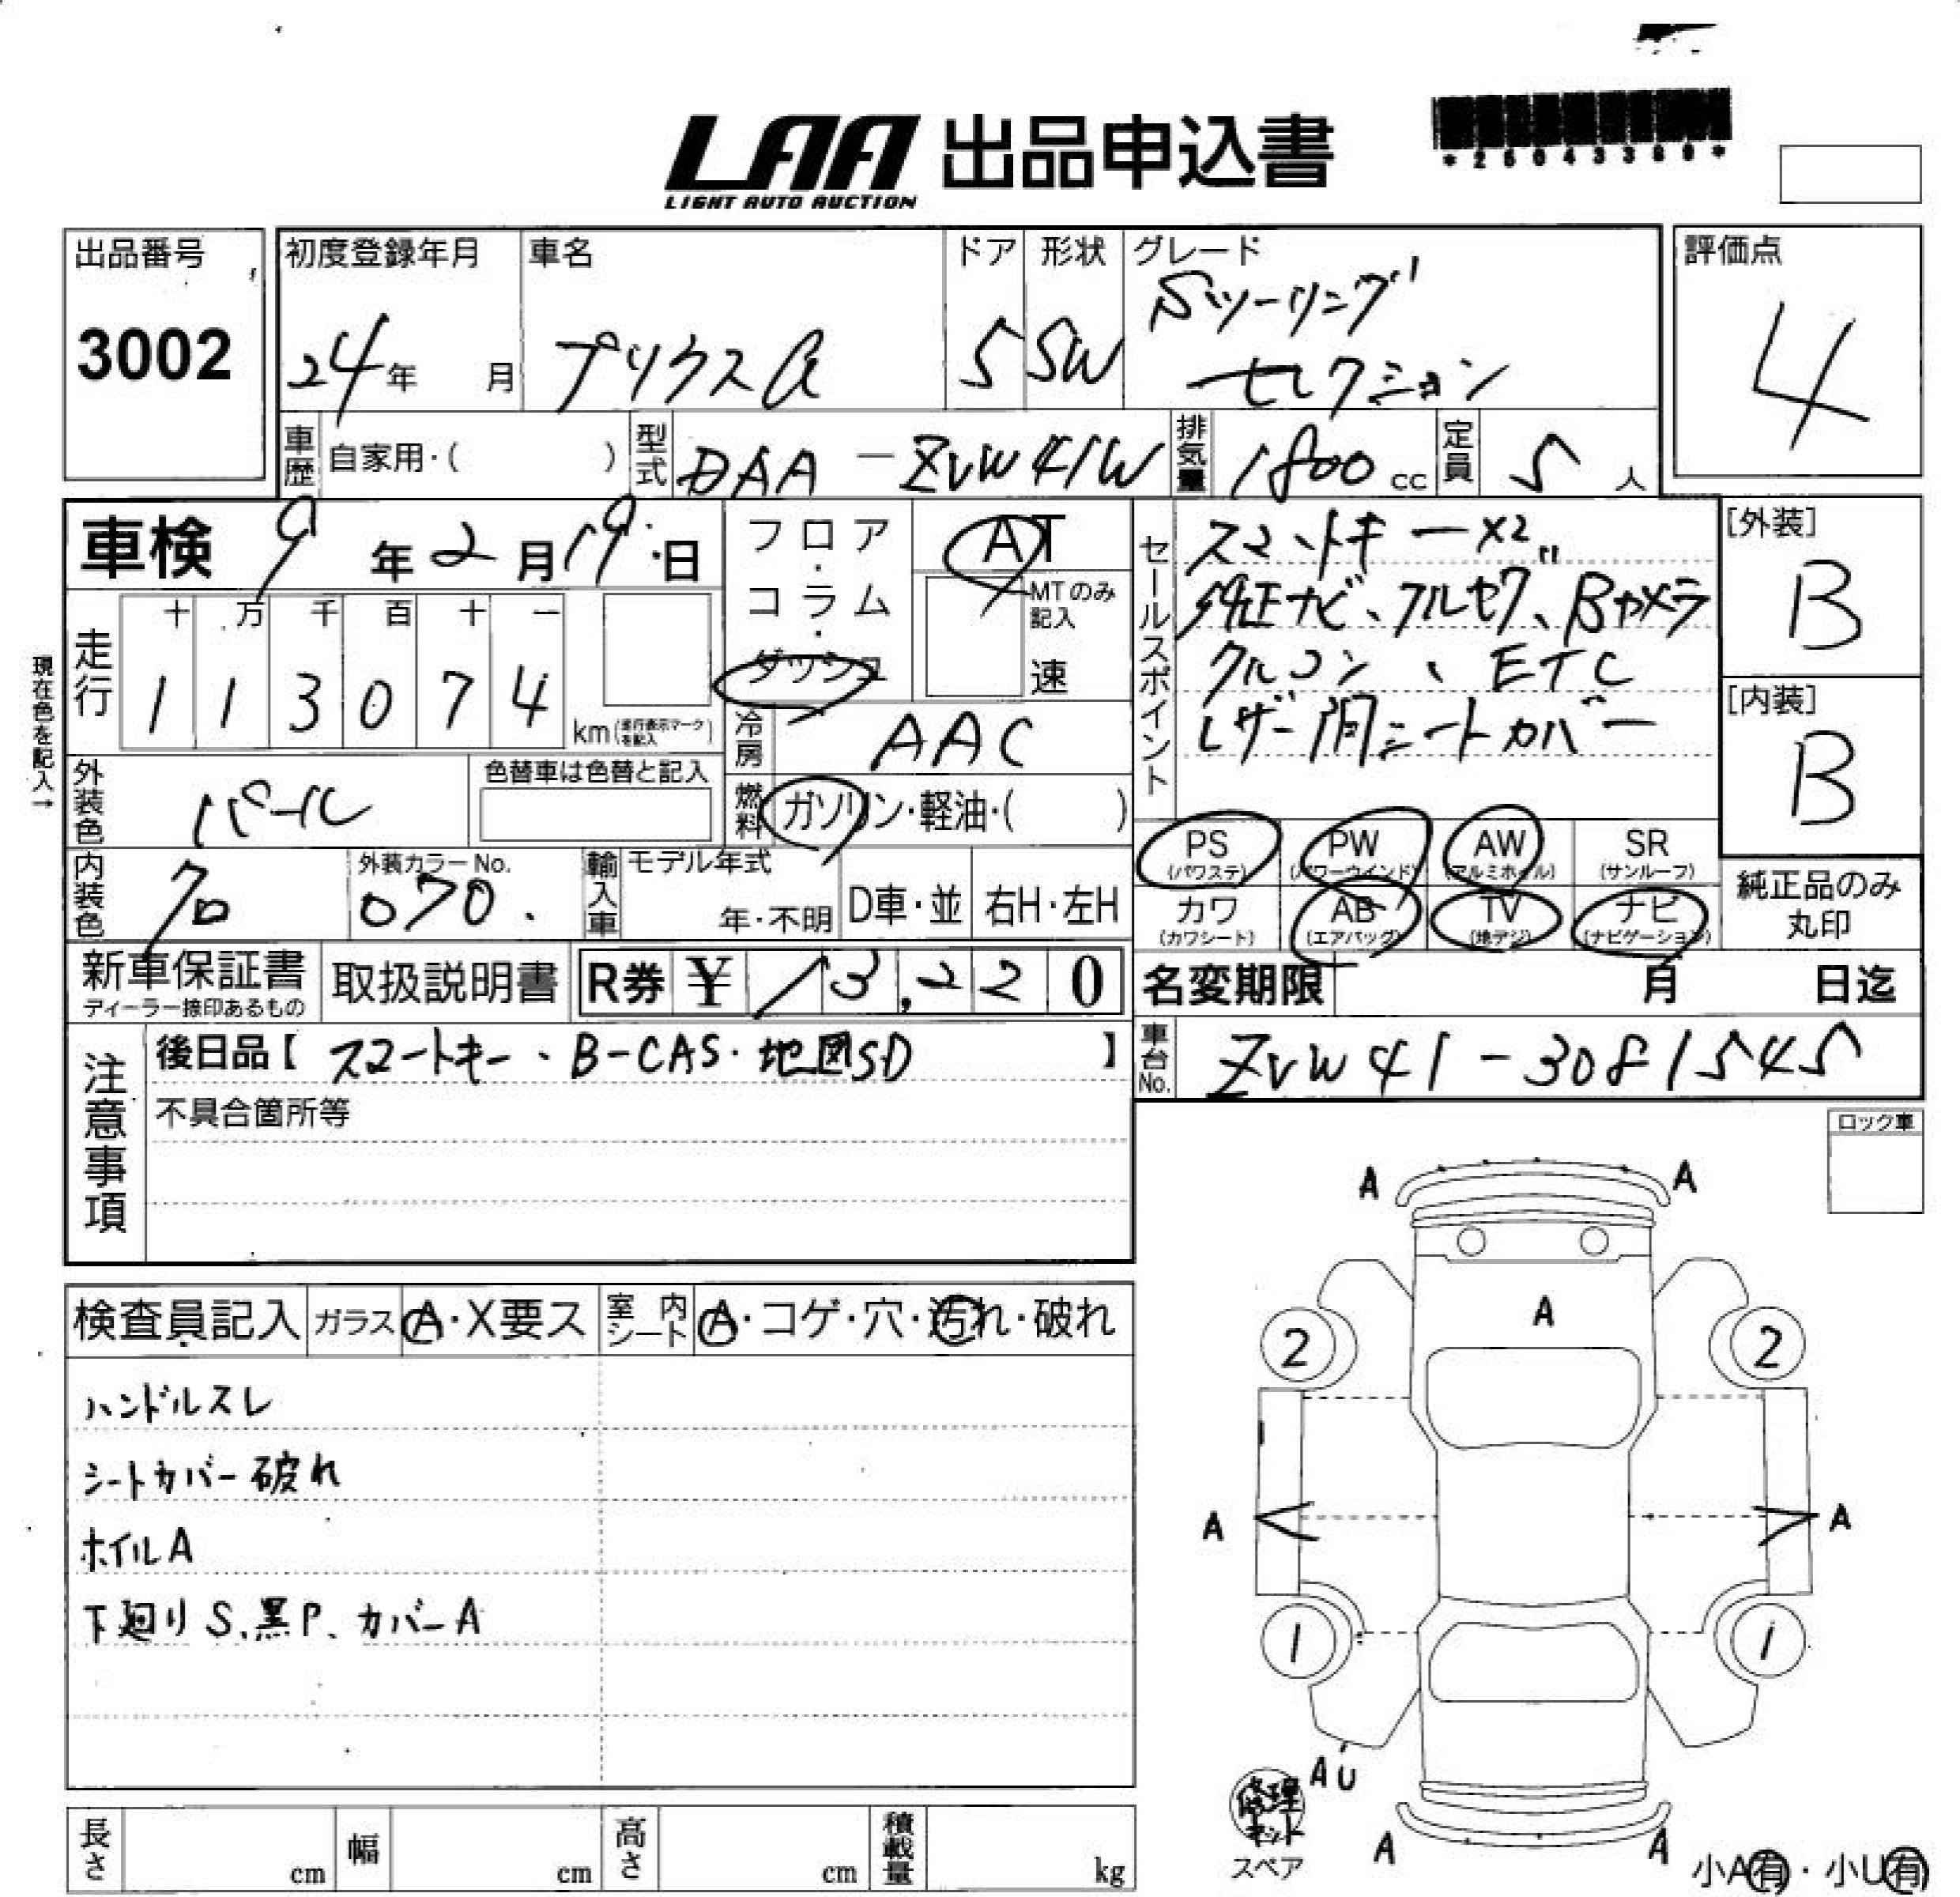 *25043389*
LAA 出品申込書
LIGHT AUTO AUCTION
出品番号
3002
初度登録年月
24年 月
車名
プリウスα
ドア
5
形状
SW
グレード
Sツーリング
セレクション
評価点
4
車歴
自家用・( )
型式
DAA-ZVW41W
排気量
1800cc
定員
5人
車検 9年2月19日
フロア・コラム・ダッシュ
AT
MTのみ記入
速
現在色を記入→
走行
十 万 千 百 十 一
1 1 3 0 7 4
km(走行表示マークを記入)
冷房
AAC
外装色
パール
色替車は色替と記入
燃料
ガソリン・軽油・( )
内装色
クロ
外装カラーNo.
070.
輸入車
モデル年式
年・不明
D車・並
右H・左H
セールスポイント
スマートキー×2
純正ナビ、フルセグ、Bカメラ
クルコン、ETC
レザー調シートカバー
[外装]
B
[内装]
B
PS
(パワステ)
PW
(パワーウインド)
AW
(アルミホイル)
SR
(サンルーフ)
カワ
(カワシート)
AB
(エアバッグ)
TV
(地デジ)
ナビ
(ナビゲーション)
純正品のみ
丸印
新車保証書
ディーラー捺印あるもの
取扱説明書
R券 ¥ 13,220
名変期限 月 日迄
車台No.
ZVW41-3081545
注意事項
後日品【 スマートキー、B-CAS・地図SD 】
不具合箇所等
ロック車
検査員記入
ガラス
A・X要ス
室内シート
A・コゲ・穴・汚れ・破れ
ハンドルスレ
シートカバー破れ
ホイルA
下廻りS、黒P、カバーA
A A
A
2 2
A A
1 1
AU
修理キット
スペア
A A
小A有・小U有
長さ cm
幅 cm
高さ cm
積載量 kg